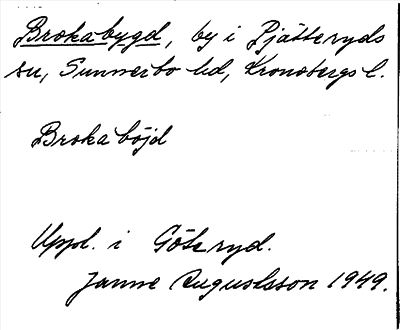 Brokabygd, by i Pjätteryds
sn, Sunnerbo hd, Kronobergs l.
Broka böjd
Uppl. i Göteryd.
Janne Augustsson 1949.